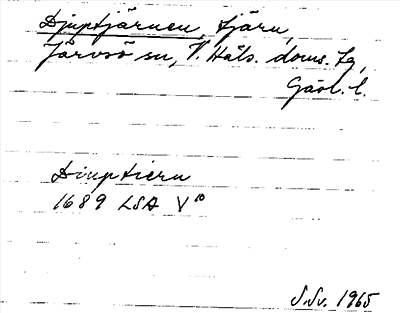 Djuptjärnen, tjärn,
Järvsö sn, V. Häls. doms. tg,
Gävl. l.
Diuptiern
1689 LSA V¹⁰
S.Sv. 1965